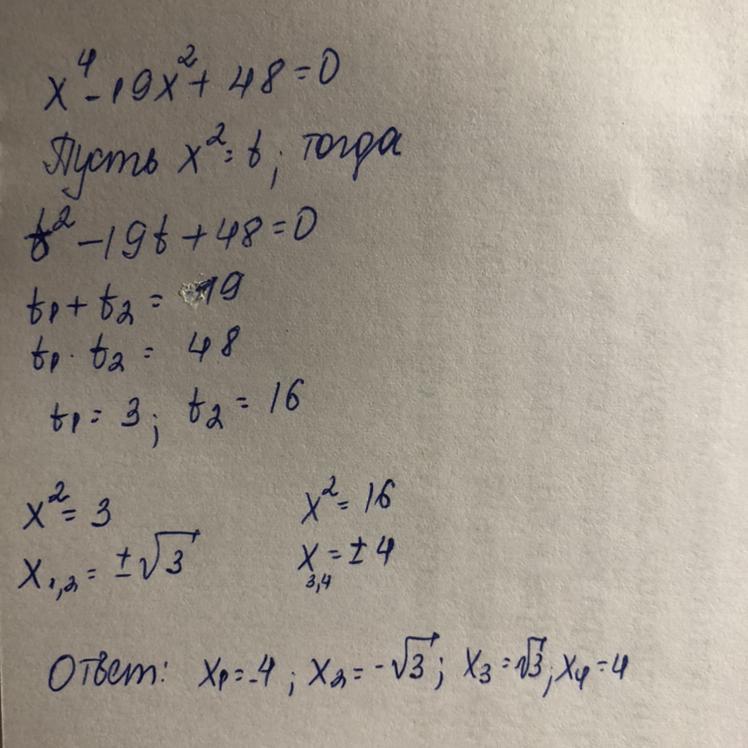 x⁴-19x²+48=0
Пусть x²=t, тогда
t²-19t+48=0
t₁+t₂=19
t₁·t₂=48
t₁=3; t₂=16
x²=3 x²=16
x₁,₂=±√3 x₃,₄=±4
Ответ: x₁=-4; x₂=-√3; x₃=√3; x₄=4